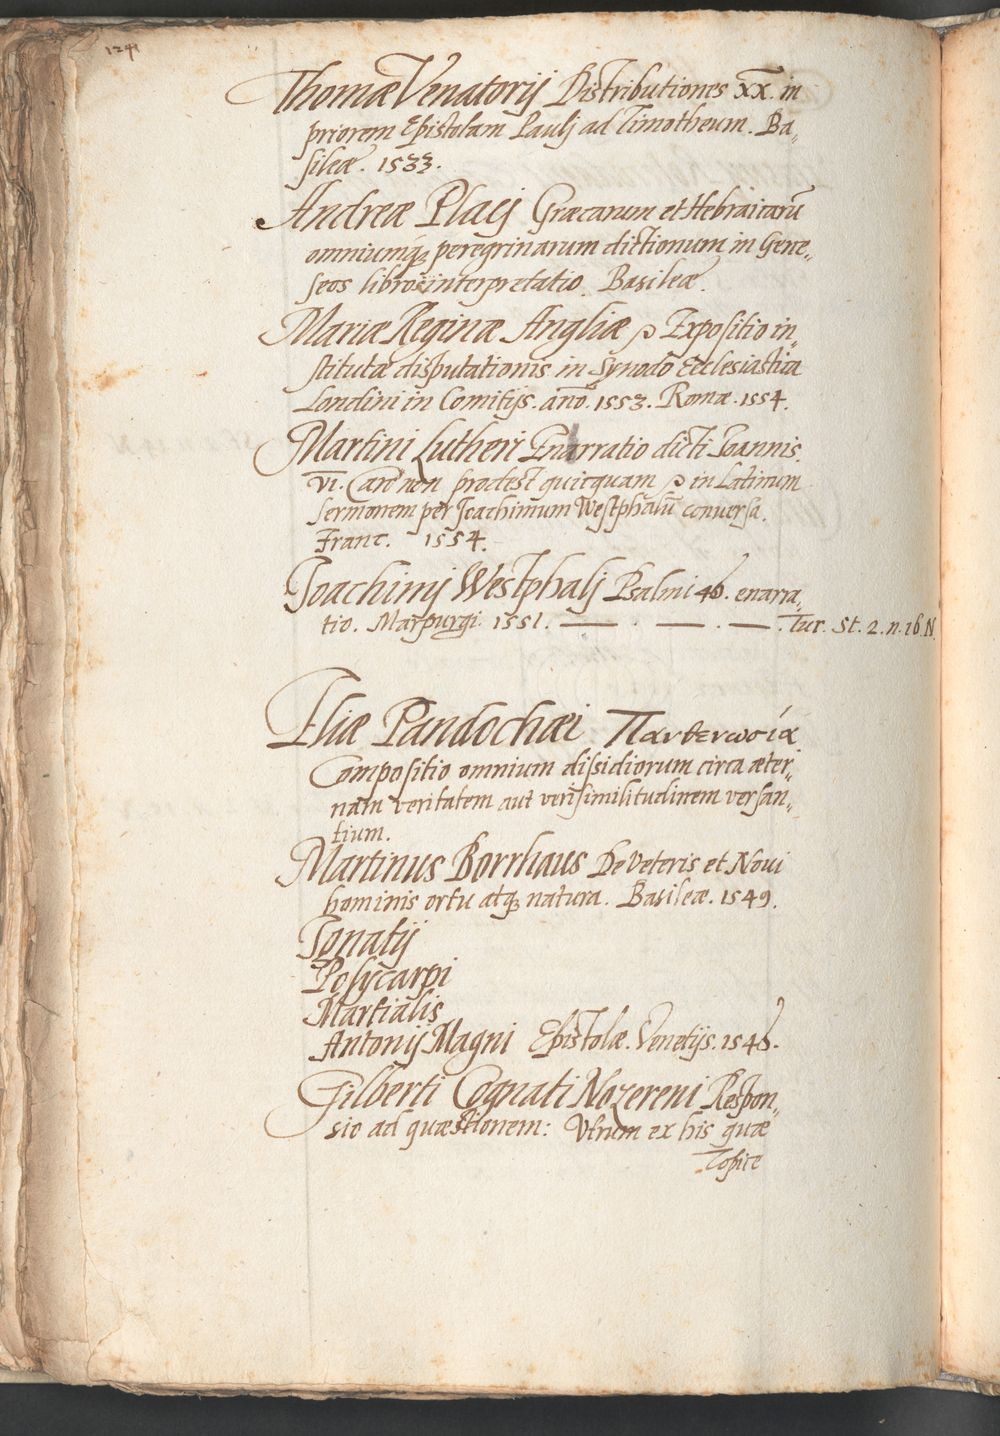 1241
Thomæ Venatorij Distributiones XX. in
priorem Epistolam Paulj ad Timotheum. Ba„
sileæ. 1533.
Andreæ Placj Græcarum et Hebraicarū
omniumq꜖ peregrinarum dictionum in Gene„
seos libros interpretatio. Basileæ.
Mariæ Reginæ Angliæ Expositio in„
stitutæ disputationis in Synodo Ecclesiastica
Londini in Comitijs. anō. 1553. Romæ. 1554.
Martini Lutheri Enarratio dicti Ioannis.
VI. Caro non prodest quicquam in Latinum
sermonem per Joachimum Westphalū conuersa.
Franc. 1554.
Joachimj Westphalj Psalmi 46. enarra„
tio. Marpurgi. 1551. — . — . — . Tur. St. 2. n. 16 N.
Eliæ Pandochæi Πανθενωσία
Compositio omnium dissidiorum circa æter„
nam veritatem aut verisimilitudinem versan„
tium.
Martinus Borrhaus De Veteris et Noui
hominis ortu atq꜖ natura. Basileæ. 1549.
Ignatij
Polycarpi
Martialis
Antonij Magni Epistolæ. Venetijs. 1546.
Gilberti Cognati Nozereni Respon„
sio ad quæstionem: Vtrum ex his quæ
Topice